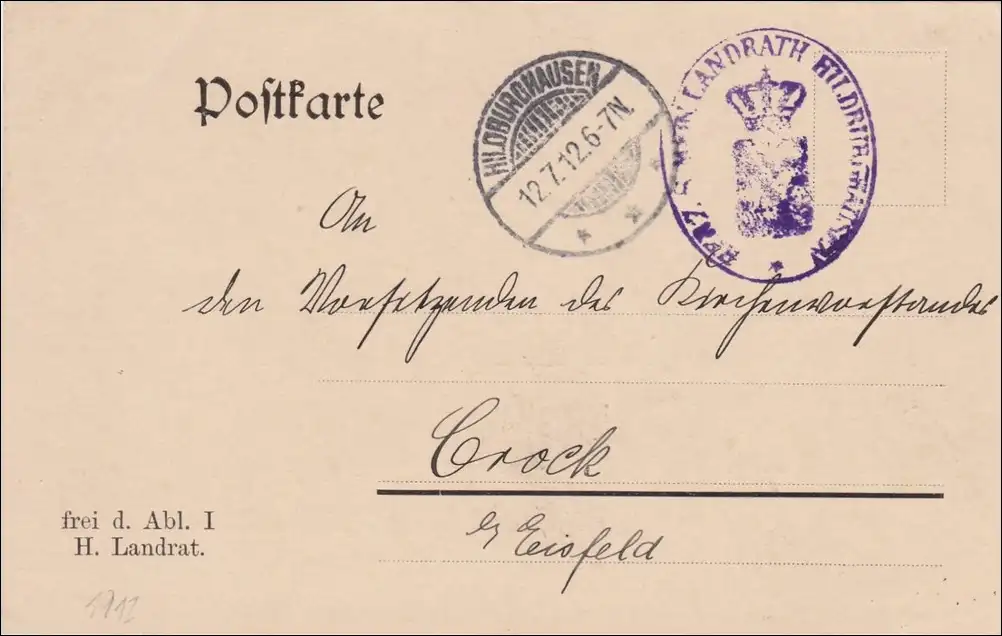 Postkarte
HILDBURGHAUSEN
12.7.12.6-7N.
LANDRATH HILDBURGHAUSEN
An
den Vorsitzenden des Kirchenvorstandes
Crock
b/ Eisfeld
frei d. Abl. I
H. Landrat.
1912